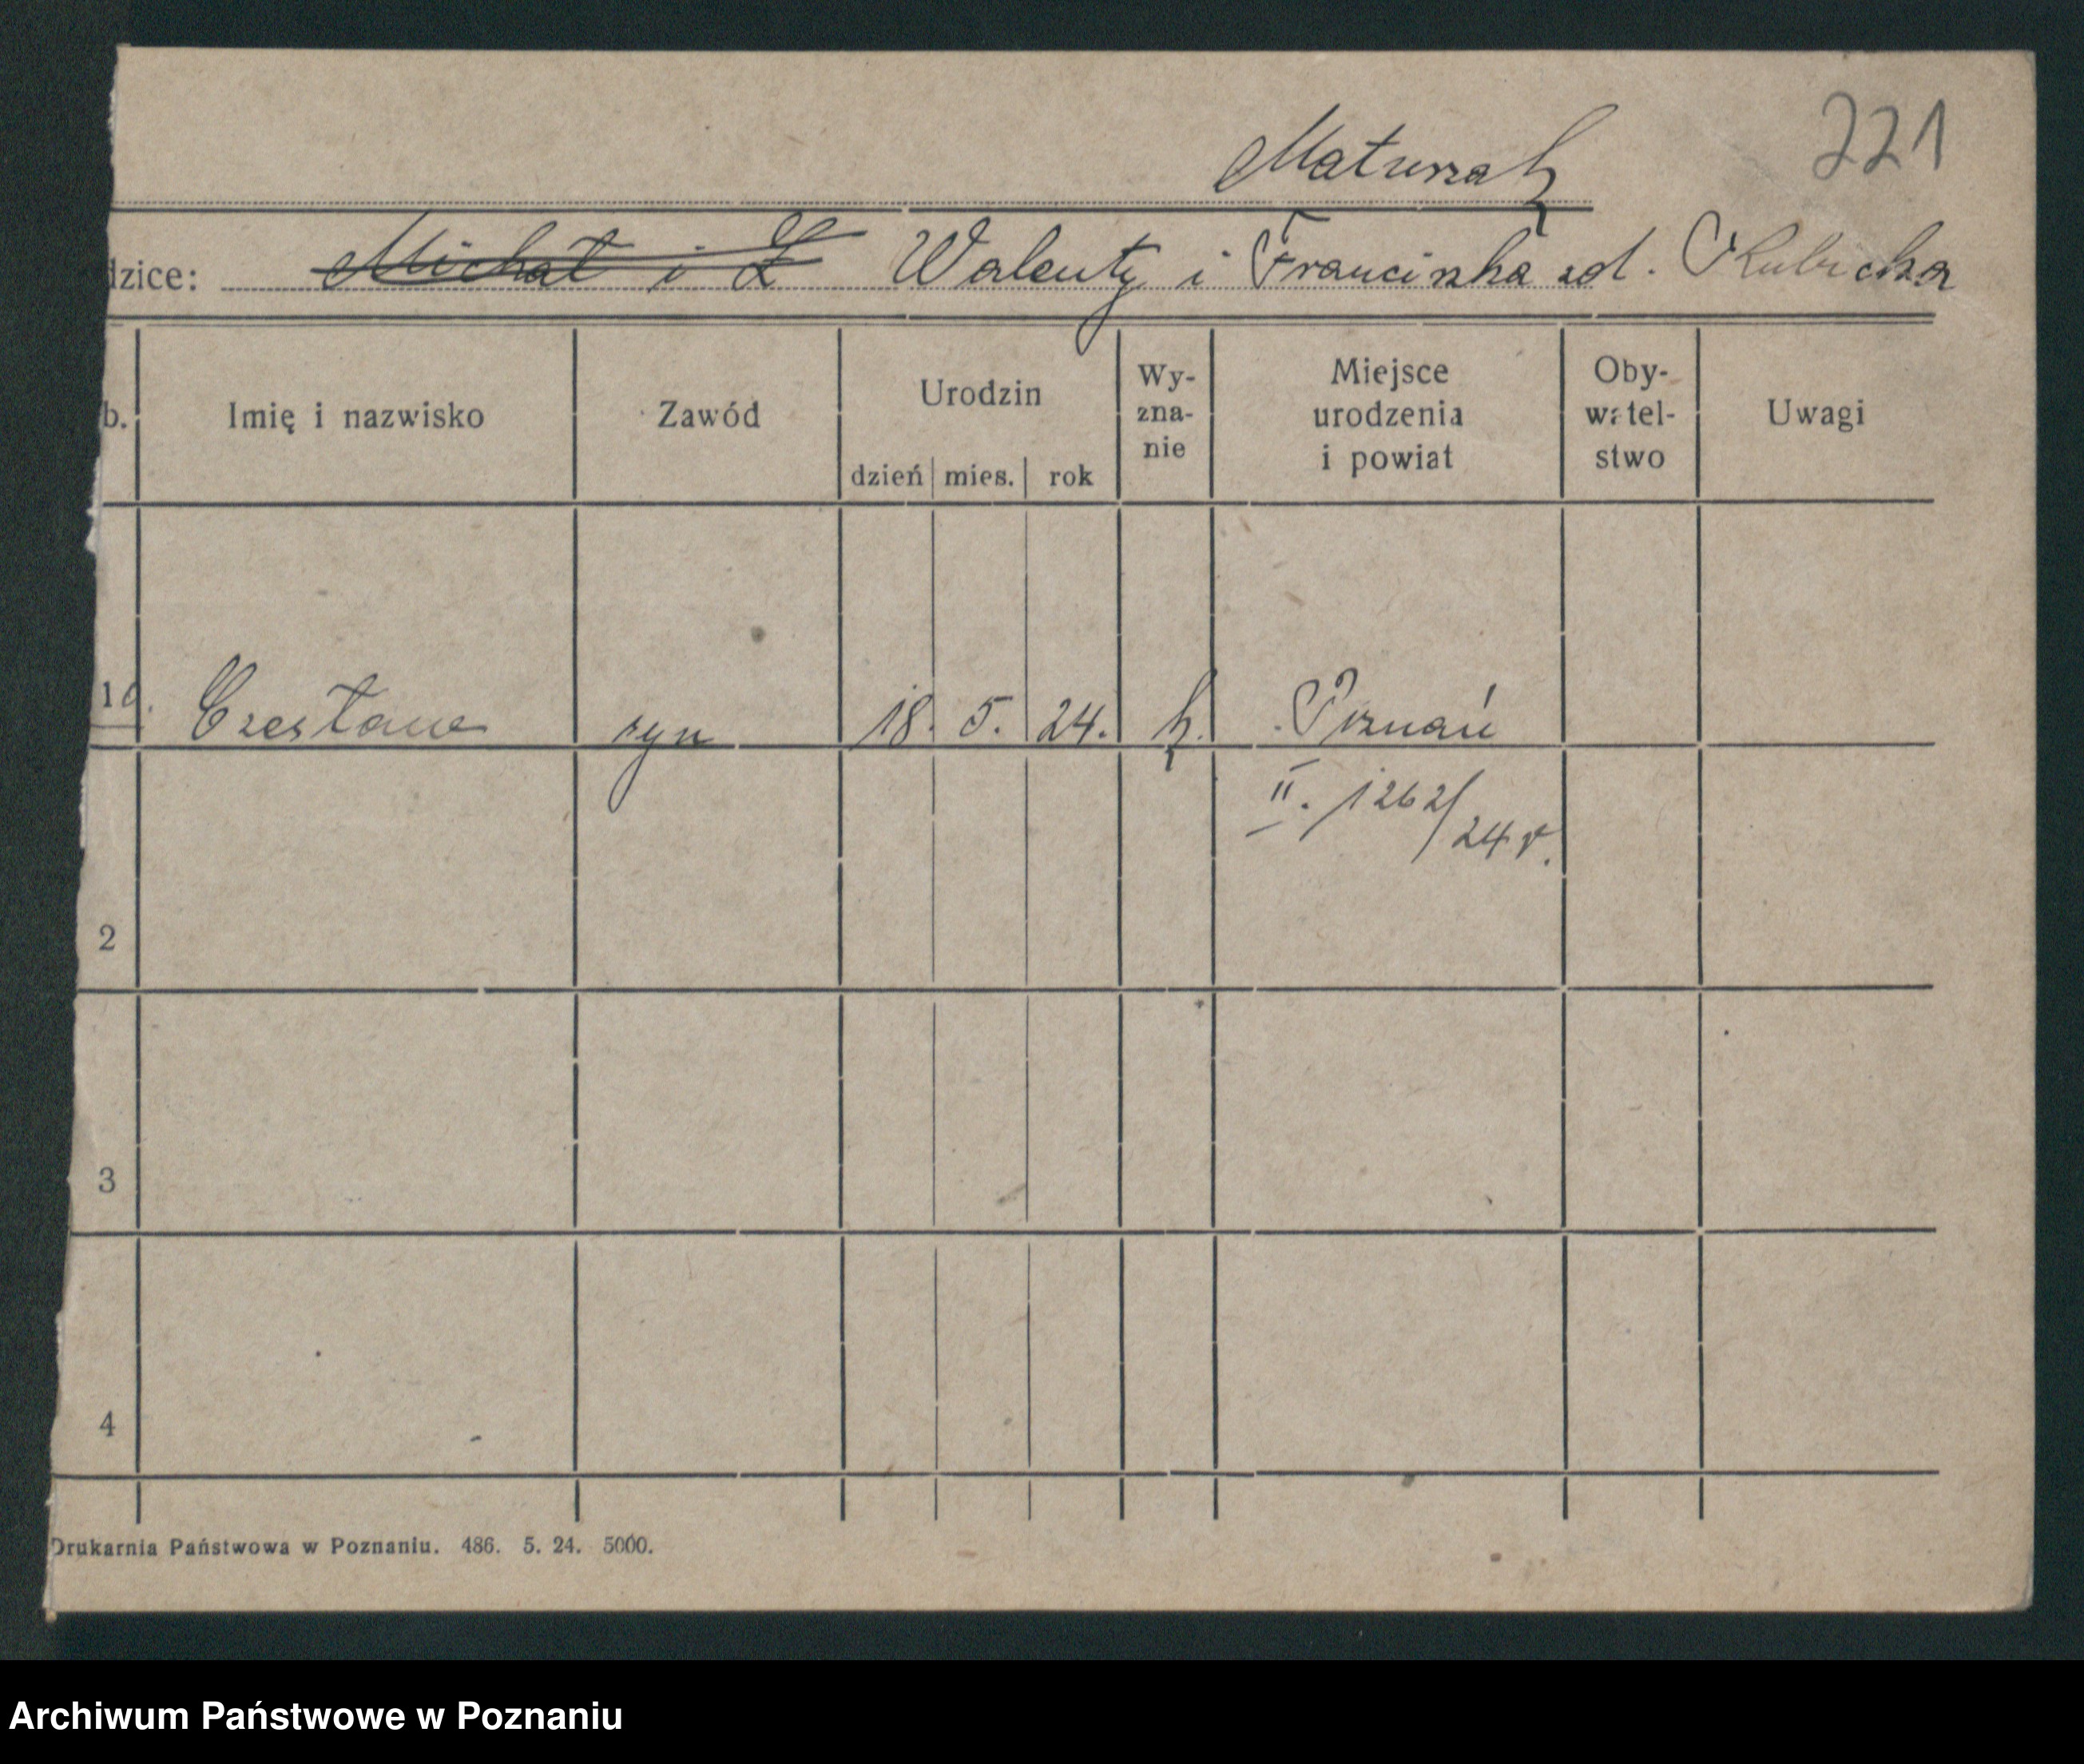 221
Maturzak
dzice: Michał i Walenty i Franciszka zd. Kubicka
b. Imię i nazwisko Zawód Urodzin dzień mies. rok Wy-zna-nie Miejsce urodzenia i powiat Oby-watel-stwo Uwagi
Czesław syn 18. 5. 24. k. Poznań
II. 1262/24 r.
2
3
4
Drukarnia Państwowa w Poznaniu. 486. 5. 24. 5000.
Archiwum Państwowe w Poznaniu